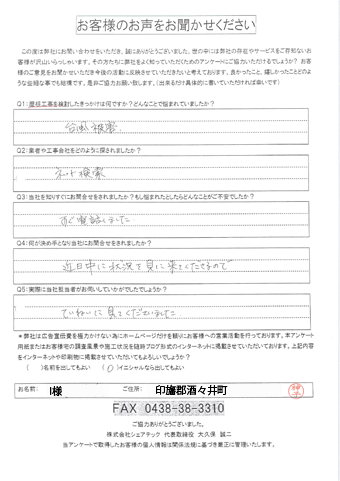 お客様のお声をお聞かせください
この度は弊社にお問い合わせをいただき、誠にありがとうございました。世の中には弊社の存在やサービスをご存知ないお
客様が沢山いらっしゃいます。その方たちに弊社をよく知っていただくためのアンケートにご協力いただけるでしょうか？ お客
様のご意見をお聞かせいただき今後の活動に反映させていきたいと考えております。良かったこと、嬉しかったことどのよ
うな些細な事でも結構です。是非ご協力お願い致します。（出来るだけ具体的に書いていただければ幸いです）
Q1：屋根工事を検討したきっかけは何ですか？どんなことで悩まれていましたか？
台風被害
Q2：業者や工事会社をどのように探されましたか？
ネット検索
Q3：当社を知りすぐにお問合せをされましたか？もし悩まれたとしたらどんなことがご不安でしたか？
すぐ電話しました
Q4：何が決め手となり当社にお問合せをされましたか？
近日中に状況を見に来てくださるので
Q5：実際に当社担当者がお伺いしていかがでしたでしょうか？
ていねいに見てくださいました
＊弊社は広告宣伝費を極力かけない為にホームページだけを頼りにお客様への営業活動を行っております。本アンケート
用紙またはお客様宅の調査風景や施工状況を随時ブログ形式のインターネットに掲載させていただいております。上記内容
をインターネットや印刷物に掲載させていただいてもよろしいでしょうか？
（　）名前を出してもよい　（○）イニシャルなら出してもよい
お名前： I様　ご住所： 印旛郡酒々井町
FAX 0438-38-3310
ご協力ありがとうございました。
株式会社シェアテック 代表取締役 大久保 誠二
当アンケートで取得したお客様の個人情報は関係法規に基づき厳正に管理いたします。